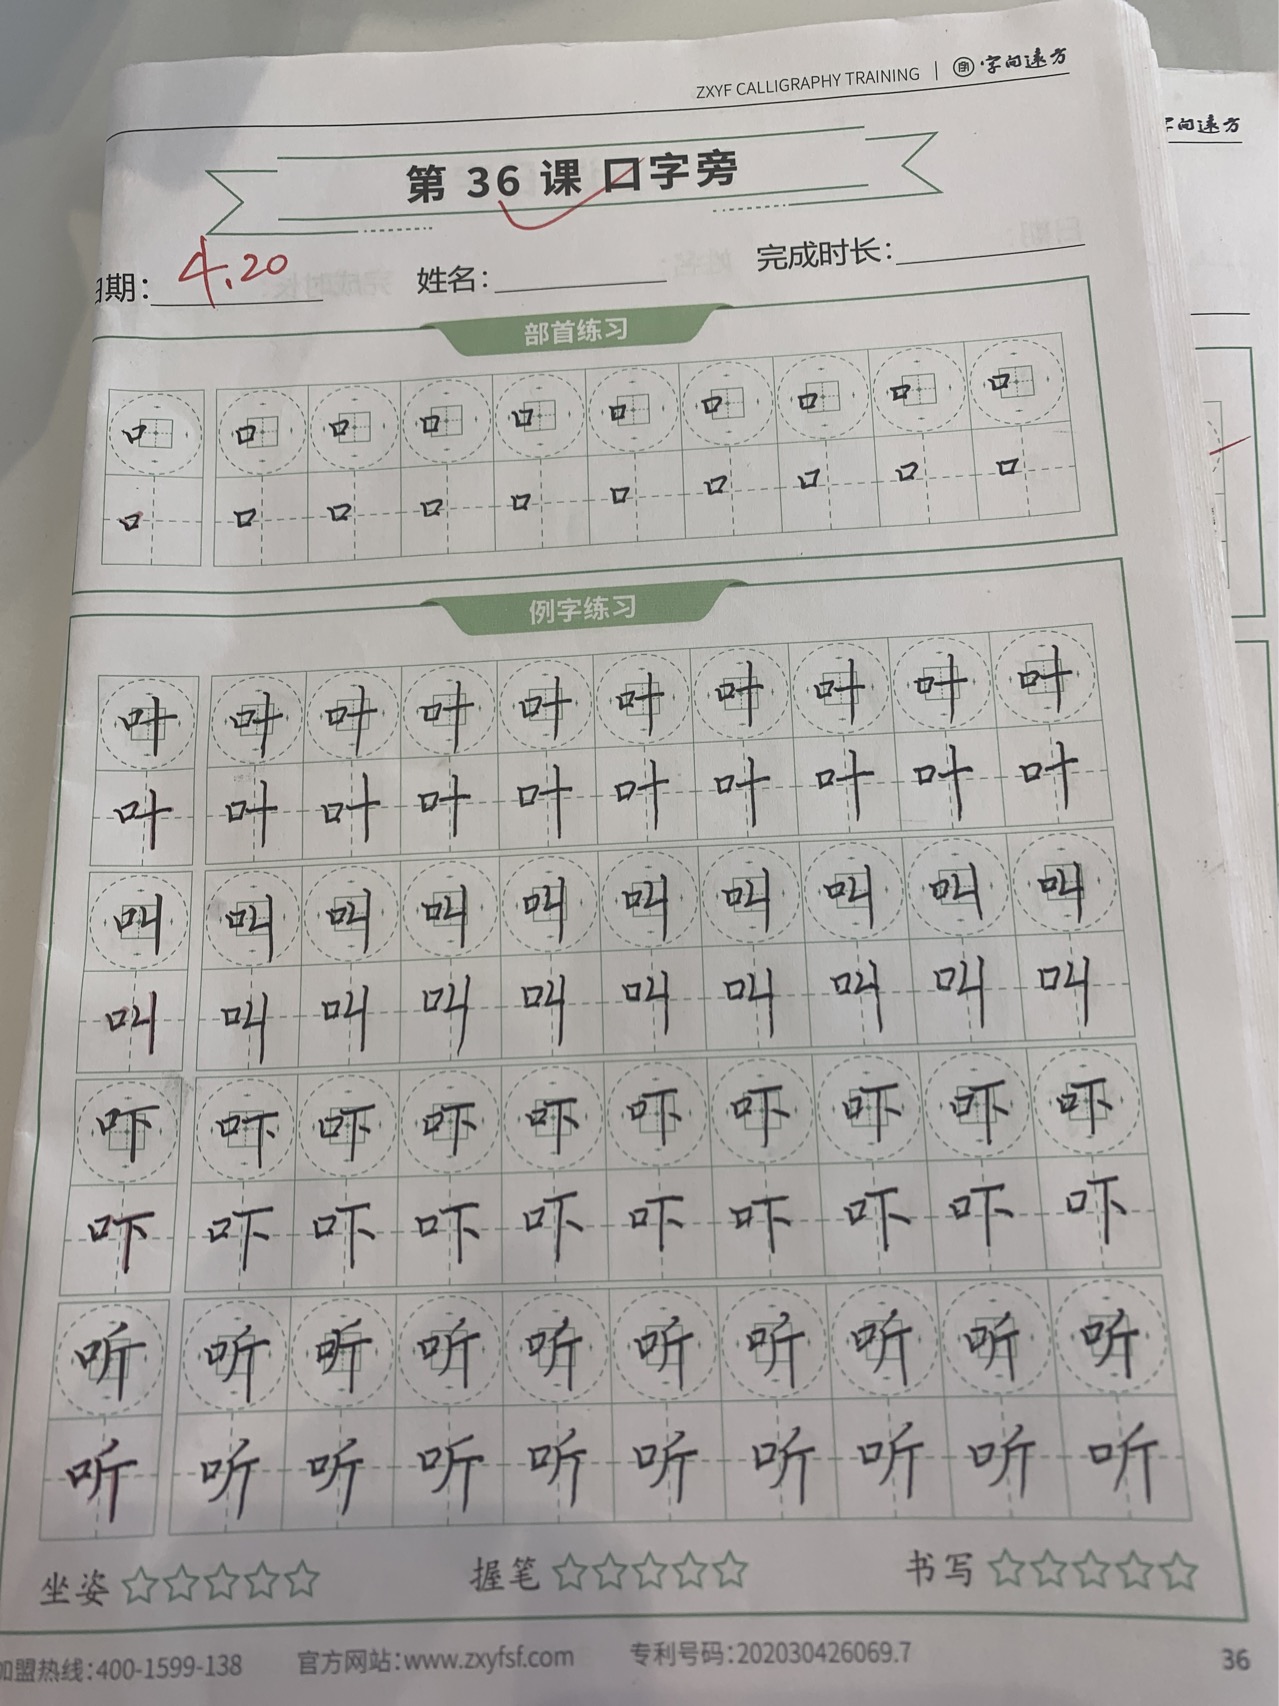 ZXYF CALLIGRAPHY TRAINING | 字向遠方
字向遠方
第 36 课 口字旁
日期: 4.20 姓名: 完成时长:
部首练习
口 口 口 口 口 口 口 口 口 口
口 口 口 口 口 口 口 口 口 口
例字练习
叶 叶 叶 叶 叶 叶 叶 叶 叶 叶
叶 叶 叶 叶 叶 叶 叶 叶 叶 叶
叫 叫 叫 叫 叫 叫 叫 叫 叫 叫
叫 叫 叫 叫 叫 叫 叫 叫 叫 叫
吓 吓 吓 吓 吓 吓 吓 吓 吓 吓
吓 吓 吓 吓 吓 吓 吓 吓 吓 吓
听 听 听 听 听 听 听 听 听 听
听 听 听 听 听 听 听 听 听 听
坐姿 握笔 书写
加盟热线:400-1599-138 官方网站:www.zxyfsf.com 专利号码:202030426069.7 36